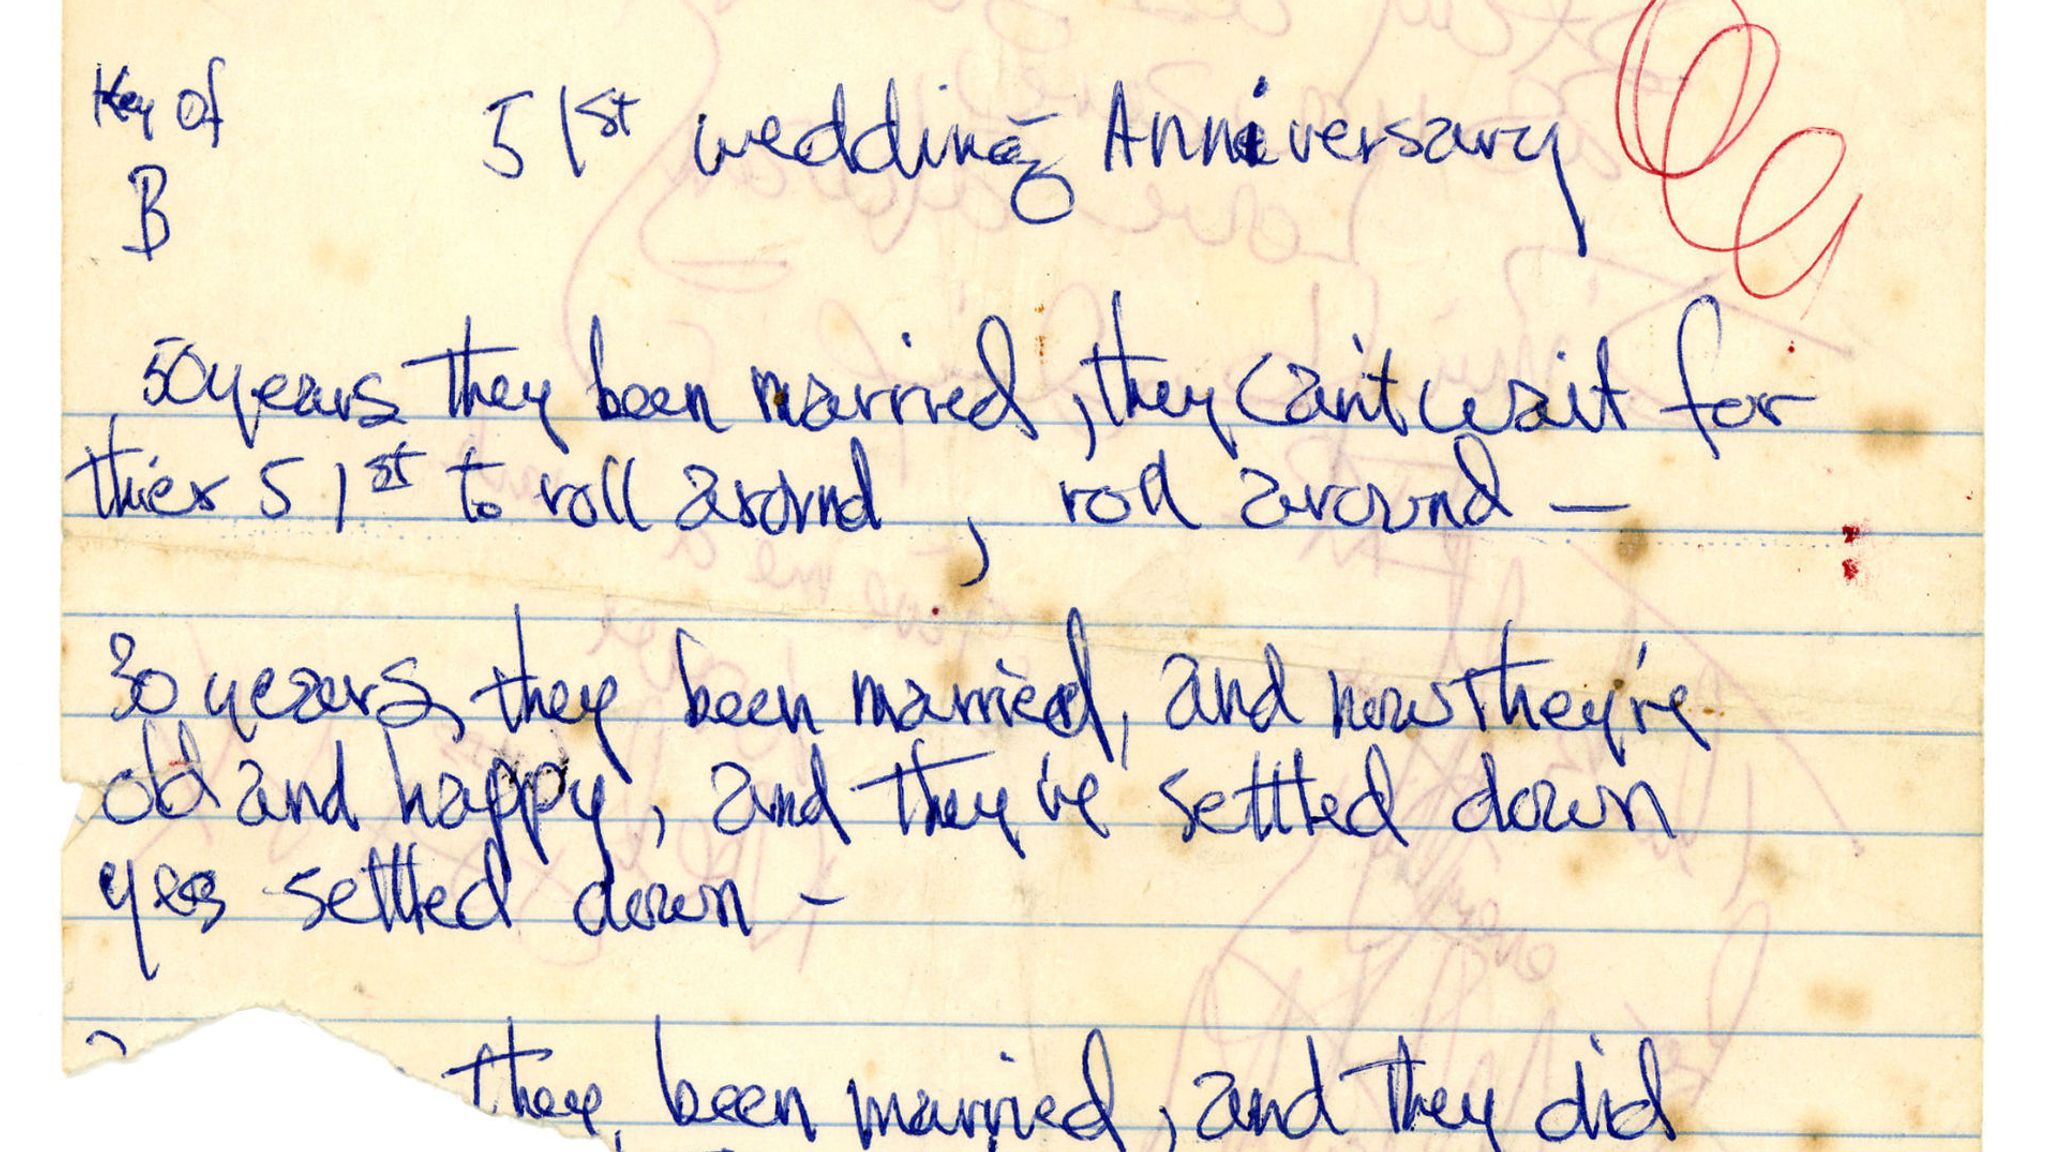 Key of
B
51st wedding Anniversary
50 years they been married, they can't wait for
thier 51st to roll around, roll around —
30 years they been married, and now they're
old and happy, and they've settled down
yes settled down –
they been married, and they did